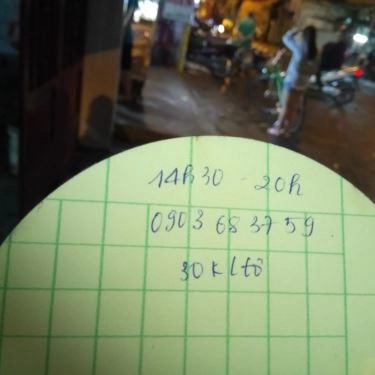 14h30 - 20h
0903 683759
30k / tô